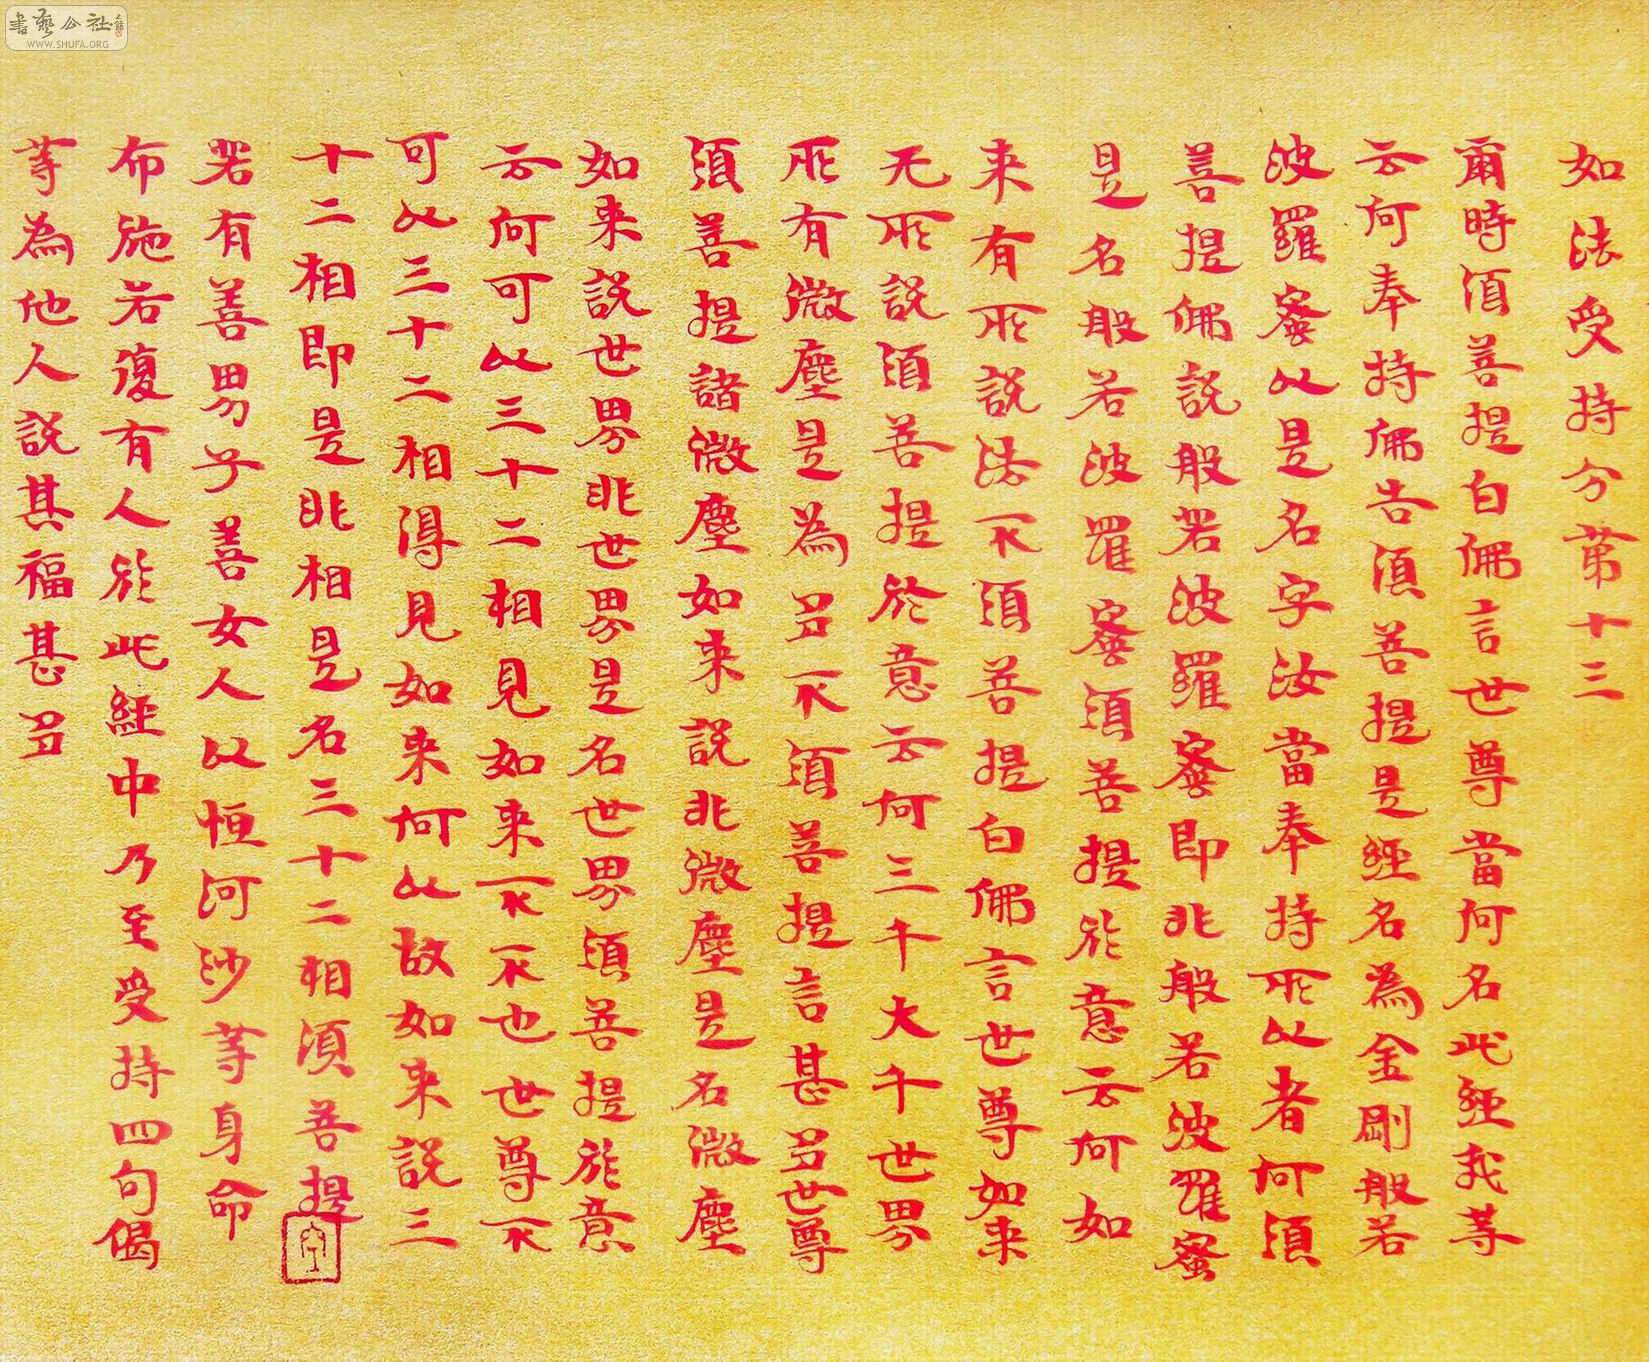 如法受持分第十三
爾時須菩提白佛言世尊當何名此經我等
云何奉持佛告須菩提是經名為金剛般若
波羅蜜以是名字汝當奉持所以者何須
菩提佛說般若波羅蜜即非般若波羅蜜
是名般若波羅蜜須菩提於意云何如
来有所說法不須菩提白佛言世尊如来
无所說須菩提於意云何三千大千世界
所有微塵是為多不須菩提言甚多世尊
須菩提諸微塵如来說非微塵是名微塵
如来說世界非世界是名世界須菩提於意
云何可以三十二相見如来不不也世尊不
可以三十二相得見如来何以故如来說三
十二相即是非相是名三十二相須菩提
若有善男子善女人以恒河沙等身命
布施若復有人於此經中乃至受持四句偈
等為他人說其福甚多
空
書藝公社
WWW.SHUFA.ORG